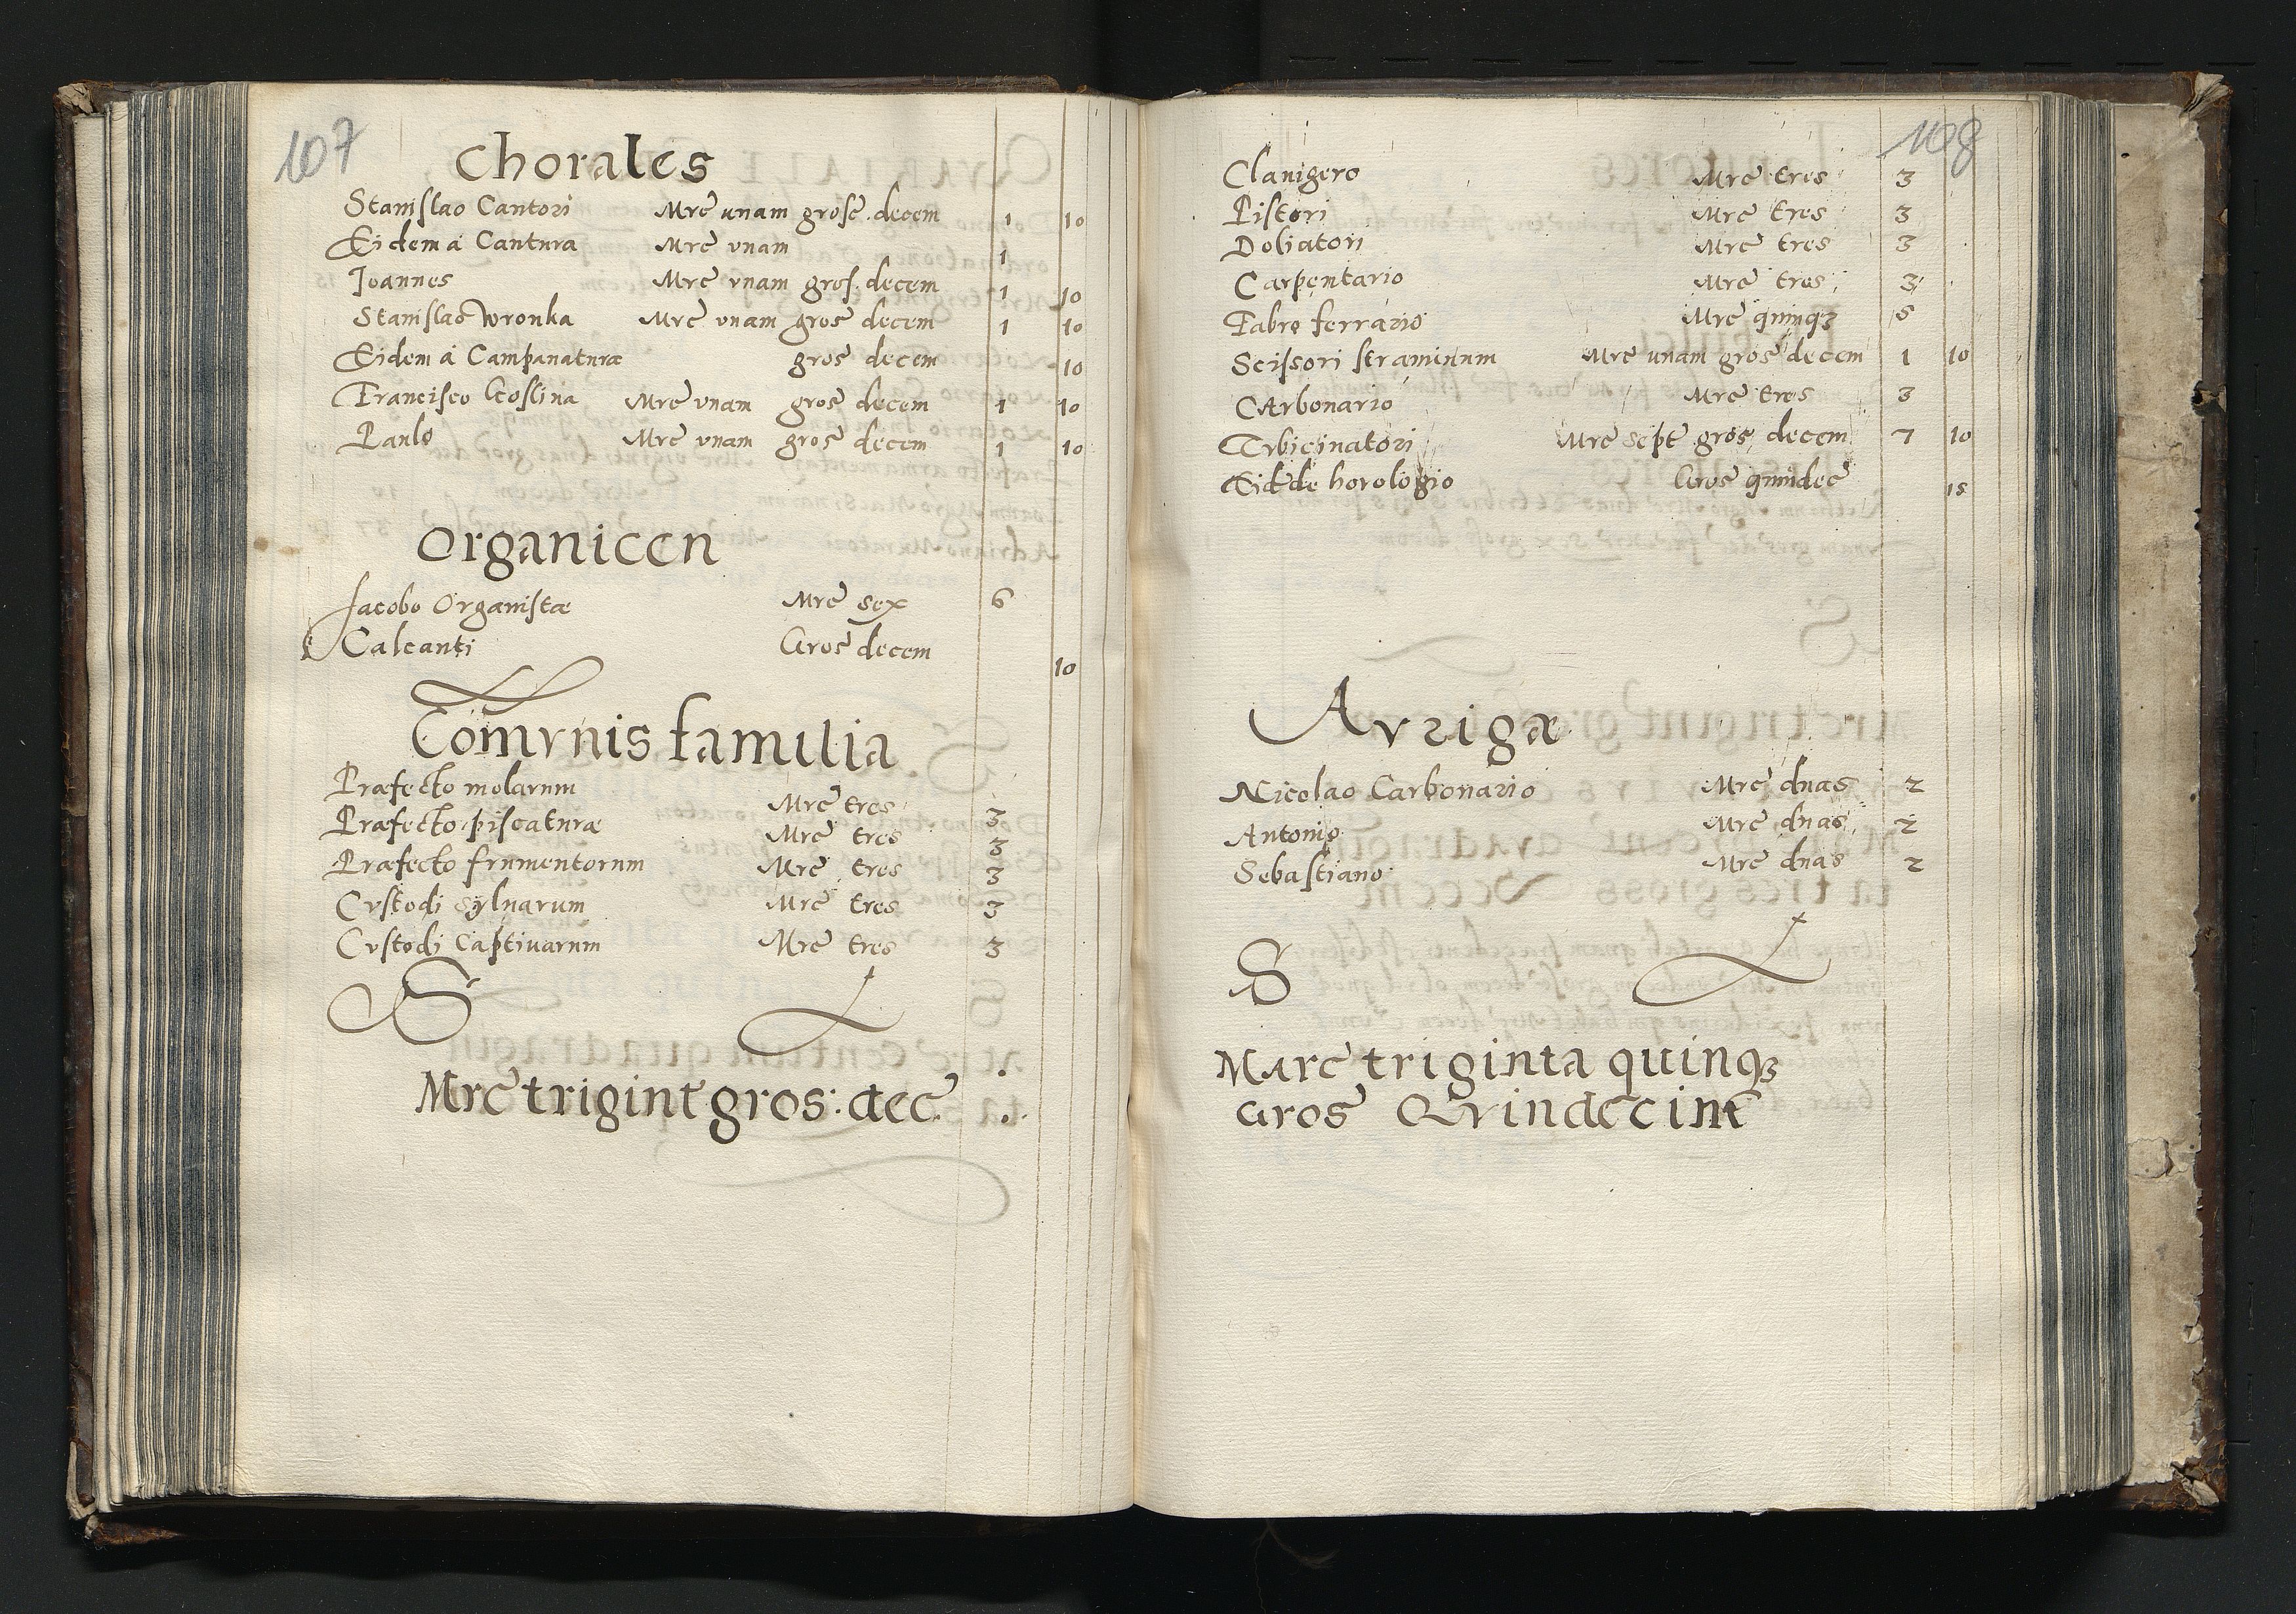 107
Chorales
Stanislao Cantori Mrc̄ unam grosc̄. decem 1 10
Eidem á Cantura Mrc̄ vnam 1
Joannes Mrc̄ vnam gros. decem 1 10
Stanislao Wronka Mrc̄ vnam gros̄ decem 1 10
Eidem á Campanaturæ gros̄ decem 10
Francisco Goslina Mrc̄ vnam gros̄ decem 1 10
Paulo Mrc̄ vnam gros̄ decem 1 10
Organicen
Jacobo Organistæ Mrc̄ sex 6
Calcanti Gros̄ decem 10
Com̄vnis familia
Præfecto molarum Mrc̄ tres 3
Præfecto piscaturæ Mrc̄ tres 3
Præfecto frumentorum Mrc̄ tres 3
Cvstodi sÿluarum Mrc̄ tres 3
Cvstodi Captivarum Mrc̄ tres 3
S
Mrc̄ trigint̄ gros: dec̄
108
Clauigero Mrc̄ tres 3
Pistori Mrc̄ tres 3
Doliatori Mrc̄ tres 3
Carpentario Mrc̄ tres 3
Fabro ferrario Mrc̄ quinqꝫ 5
Scissori straminum Mrc̄ unam gros̄ decem 1 10
CArbonario Mrc̄ tres 3
Tvbicinatori Mrc̄ sept̄ gros̄ decem 7 10
Eid̄ de horologio Gros̄ quindec̄ 15
Avrigæ
Nicolao Carbonario Mrc̄ duas 2
Antonio Mrc̄ duas 2
Sebastiano Mrc̄ duas 2
S
Marc̄ triginta quinqꝫ
Gros̄ Qvindecim̄